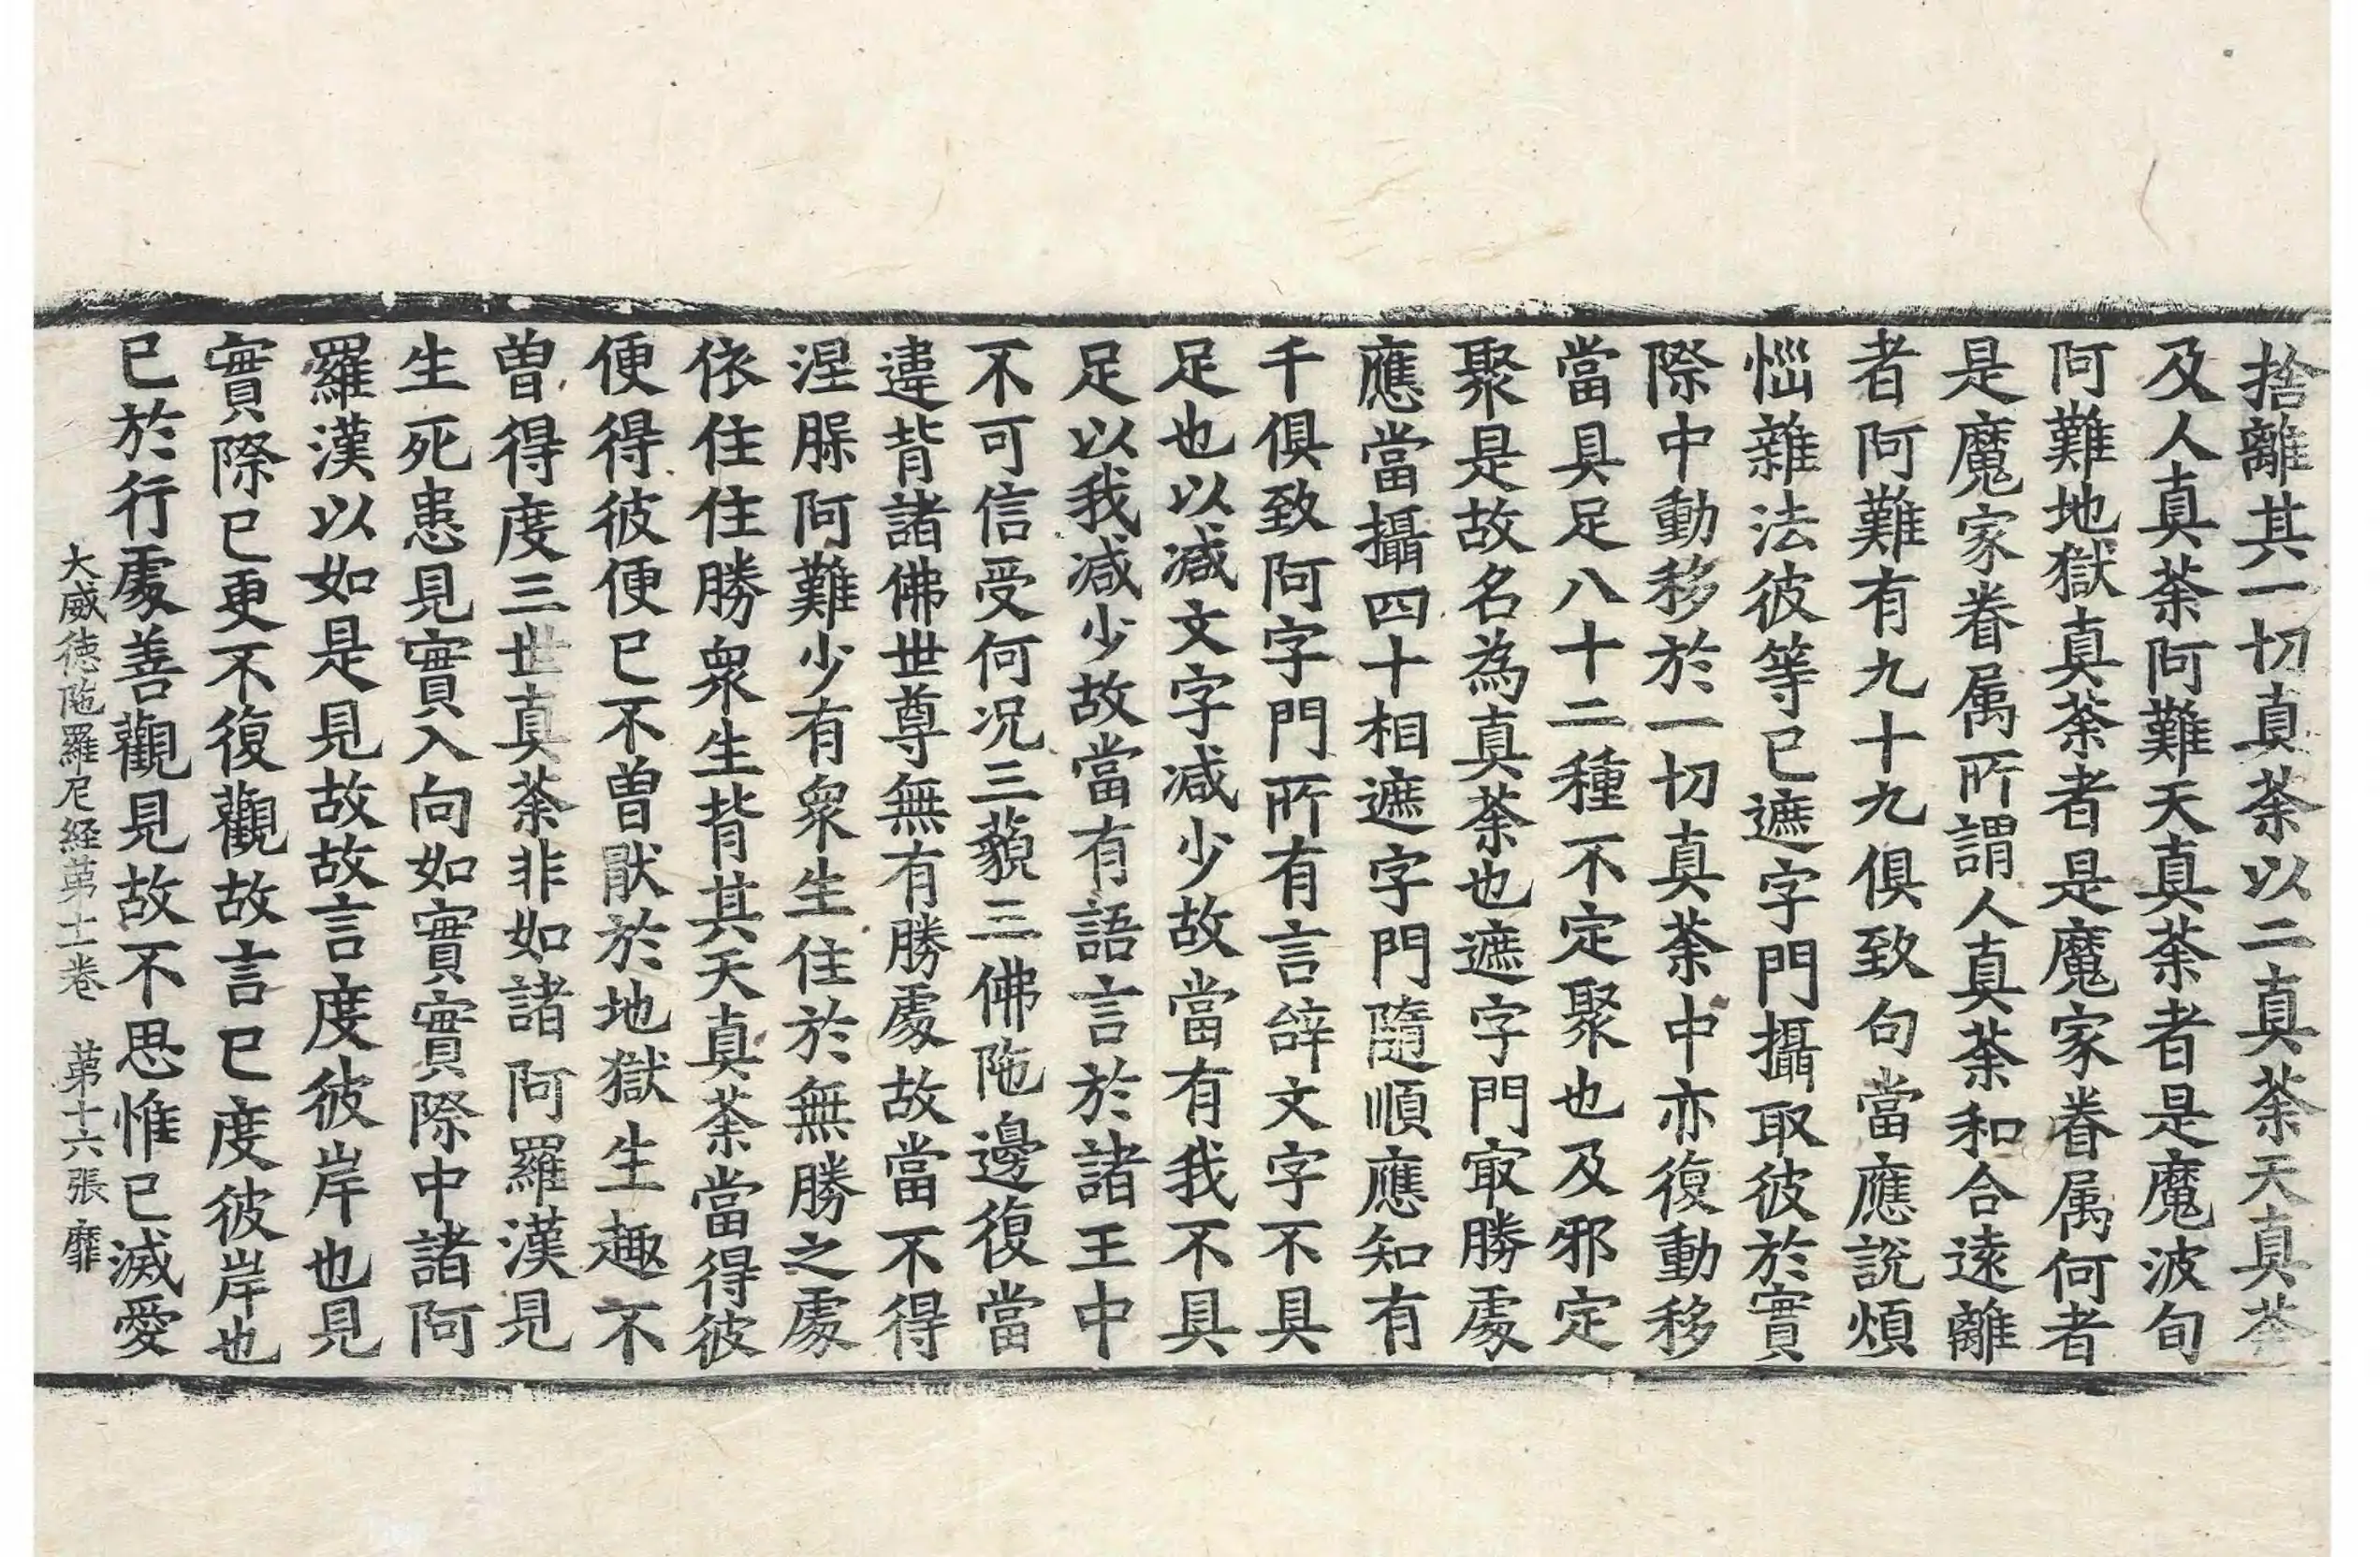 捨離其一切真荼以二真荼天真荼
及人真荼阿難天真荼者是魔波旬
阿難地獄真荼者是魔家眷属何者
是魔家眷属所謂人真荼和合遠離
者阿難有九十九俱致句當應說煩
惱雜法彼等已遮字門攝取彼於實
際中動移於一切真荼中亦復動移
當具足八十二種不定聚也及邪定
聚是故名為真荼也遮字門㝡勝處
應當攝四十相遮字門隨順應知有
千俱致阿字門所有言辝文字不具
足也以减文字减少故當有我不具
足以我减少故當有語言於諸王中
不可信受何况三藐三佛陁邊復當
違背諸佛世尊無有勝處故當不得
涅槃阿難少有衆生住於無勝之處
依住住勝衆生背其天真荼當得彼
便得彼便已不曽猒於地獄生趣不
曽得度三世真荼非如諸阿羅漢見
生死患見實入向如實實際中諸阿
羅漢以如是見故故言度彼岸也見
實際已更不復觀故言已度彼岸也
已於行處善觀見故不思惟已滅愛
大威德陁羅尼経苐十二卷 苐十六張 靡